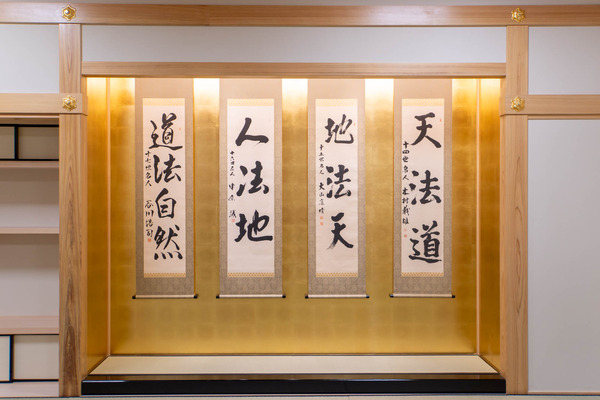 天法道
十四世名人 木村義雄
地法天
十五世名人 大山康晴
人法地
十六世名人 中原 誠
道法自然
十七世名人 谷川浩司